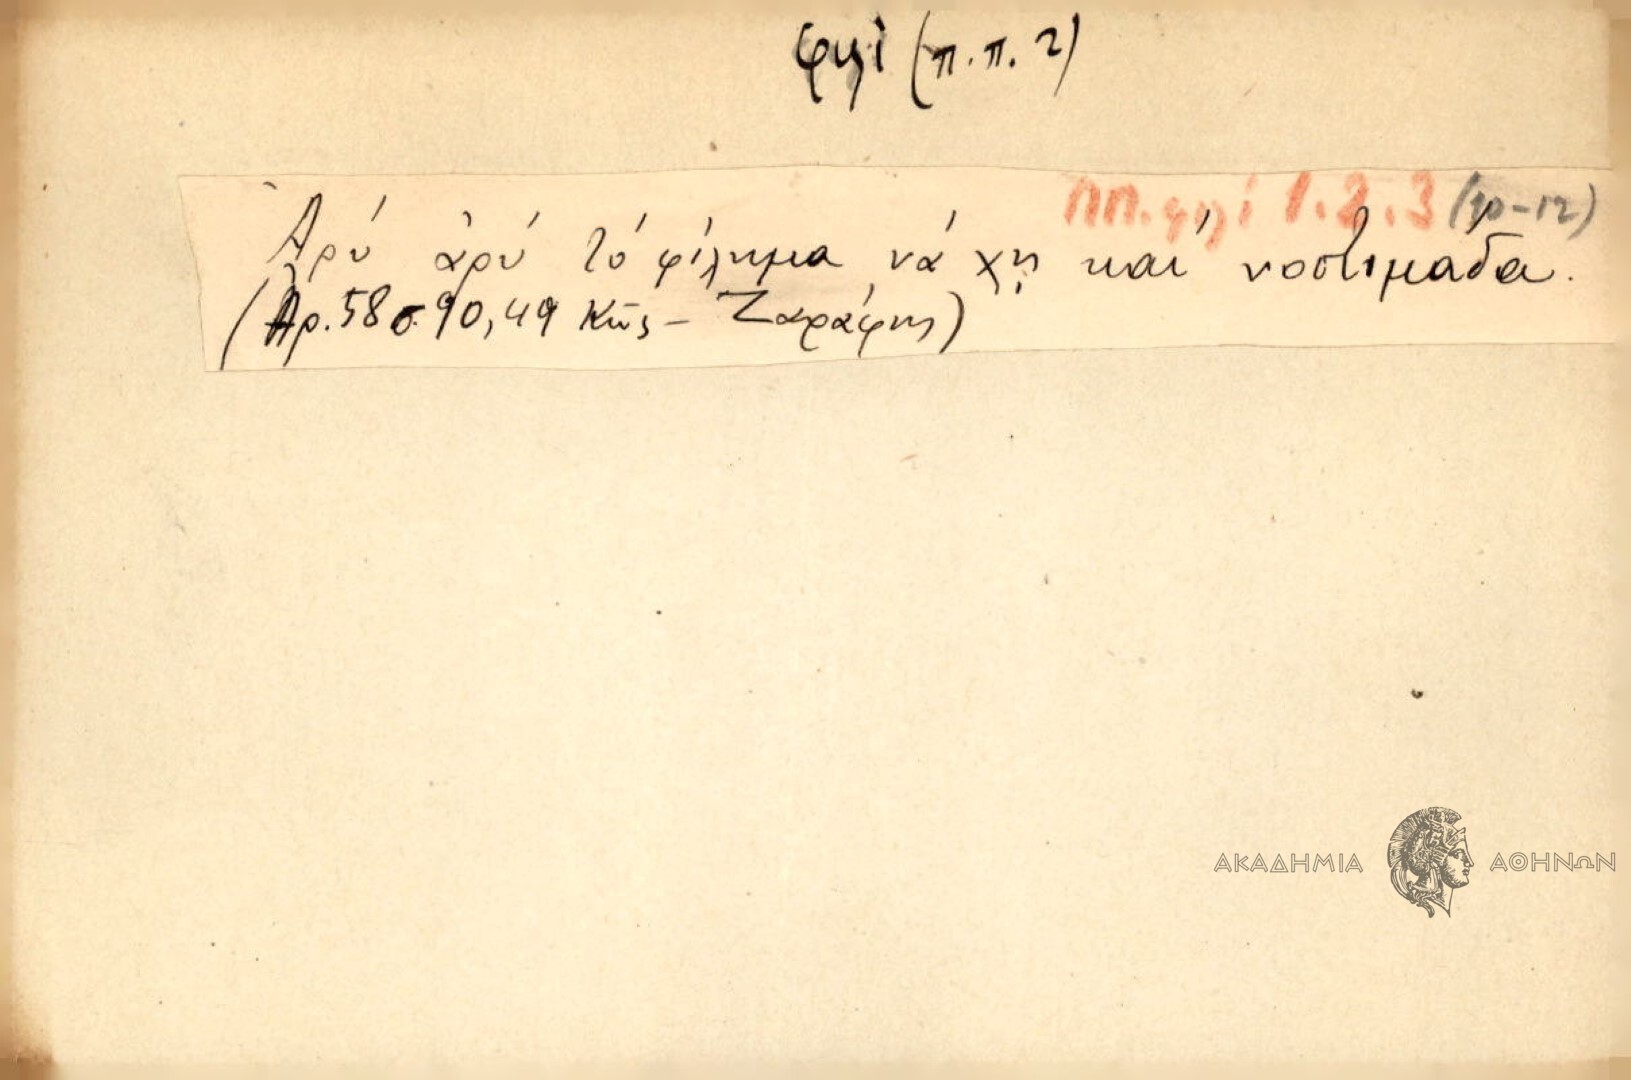 φιλί (π.π. 2)
ππ. φιλί 1.2.3 (10-12)
Ἀρύ ἀρύ τό φίλημα νά χῃ καί νοστιμάδα.
(Ἀρ. 58 σ. 90, 49 Κῶς – Ζαράφτης)
ΑΚΑΔΗΜΙΑ ΑΘΗΝΩΝ